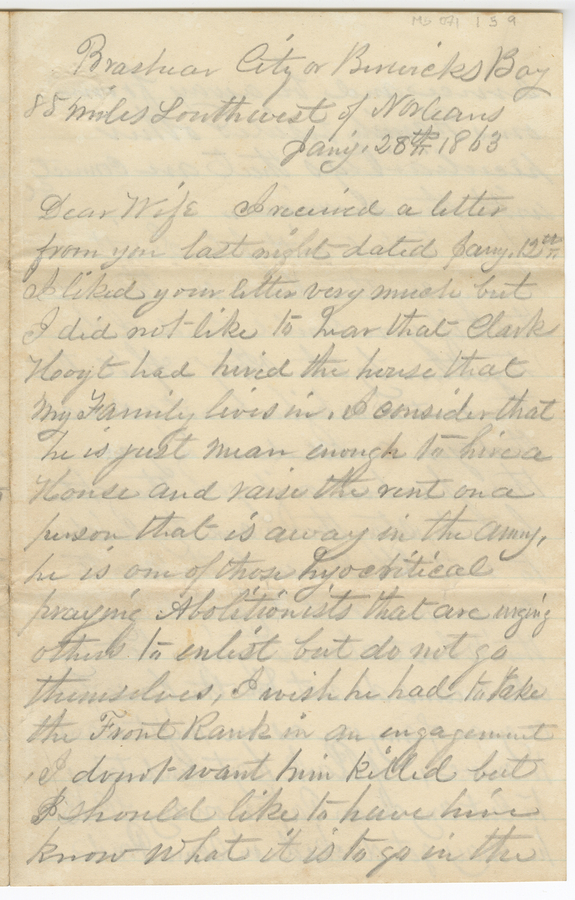 Ms 071 159
Brashear City or Berwicks Bay
85 miles Southwest of Norleans
Jany. 28th 1863
Dear Wife I received a letter
from you last night dated Jany. 12th
I liked your letter very much but
I did not like to hear that Clark
Hoyt had hired the house that
My Family lives in. I consider that
he is just mean enough to hire a
House and raise the rent on a
person that is away in the army,
he is one of those hyocritical
praying Abolitionists that are urging
others to enlist but do not go
themselves, I wish he had to take
the Front Rank in an engagement
I do not want him killed but
I should like to have him
know what it is to go in the